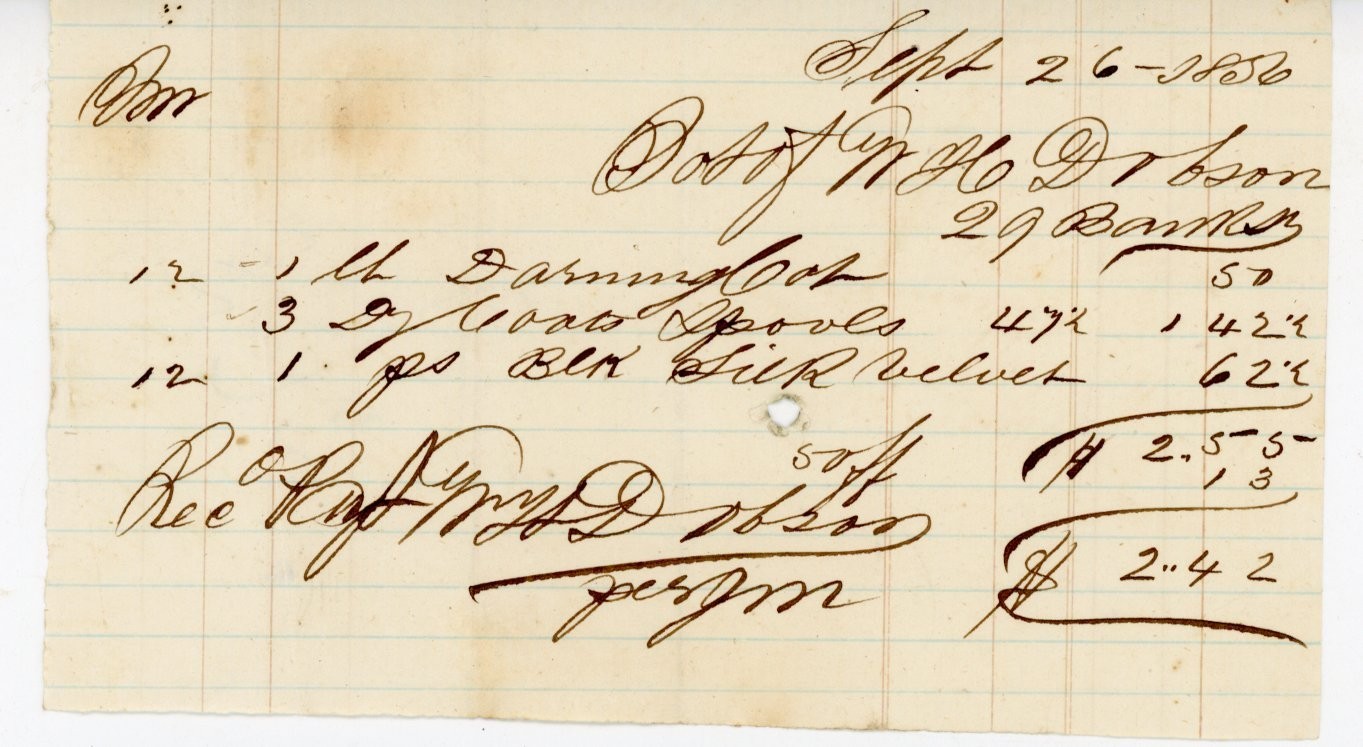 Sept 26 - 1856
Bot of Wm H Dobson
29 Bank St
12 - 1 lb Darning Cot 50
3 Dz Coats Spools 47½ 1 42½
12 1 ps Blk Silk Velvet 62½
50ff $ 2.55
13
Recd Payt Wm H Dobson
$ 2..42
per